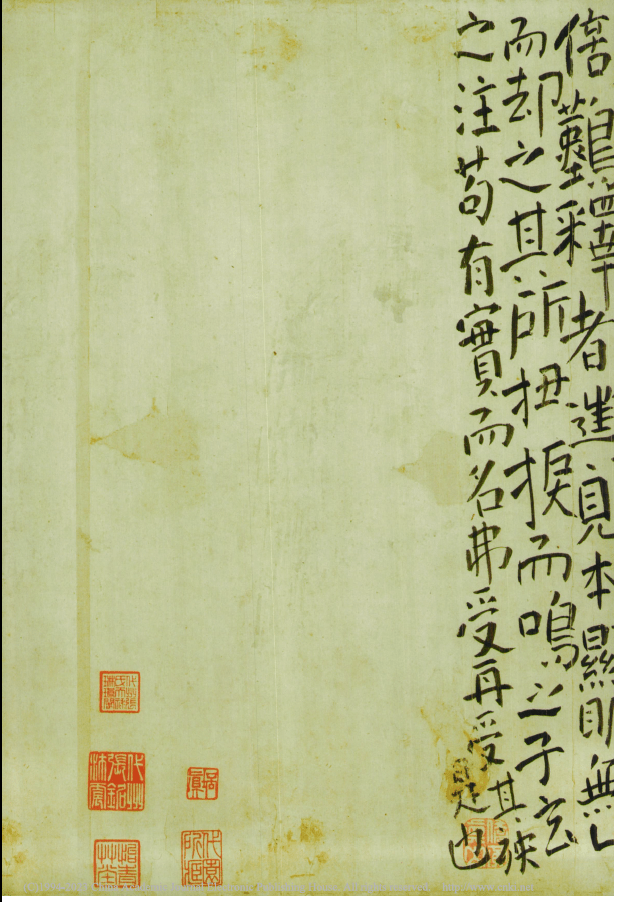 倍釋者進見本顯眀無
而却之其所扭捩而鳴之子玄
之注苟有實而名弗受再受其殃
是也